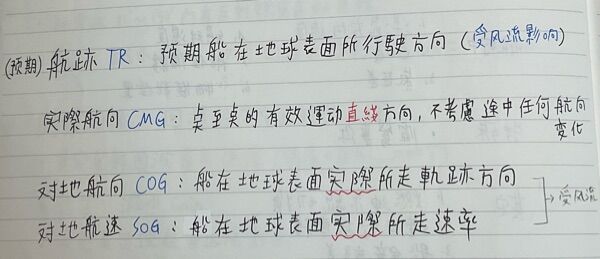 (預期)航跡 TR：預期船在地球表面所行駛方向(受风流影响)
实際航向 CMG：桌至桌的有效運动直綫方向，不考慮途中任何航向
变化
对地航向 COG：船在地球表面实際所走軌跡方向
对地航速 SOG：船在地球表面实際所走速率
→受风流